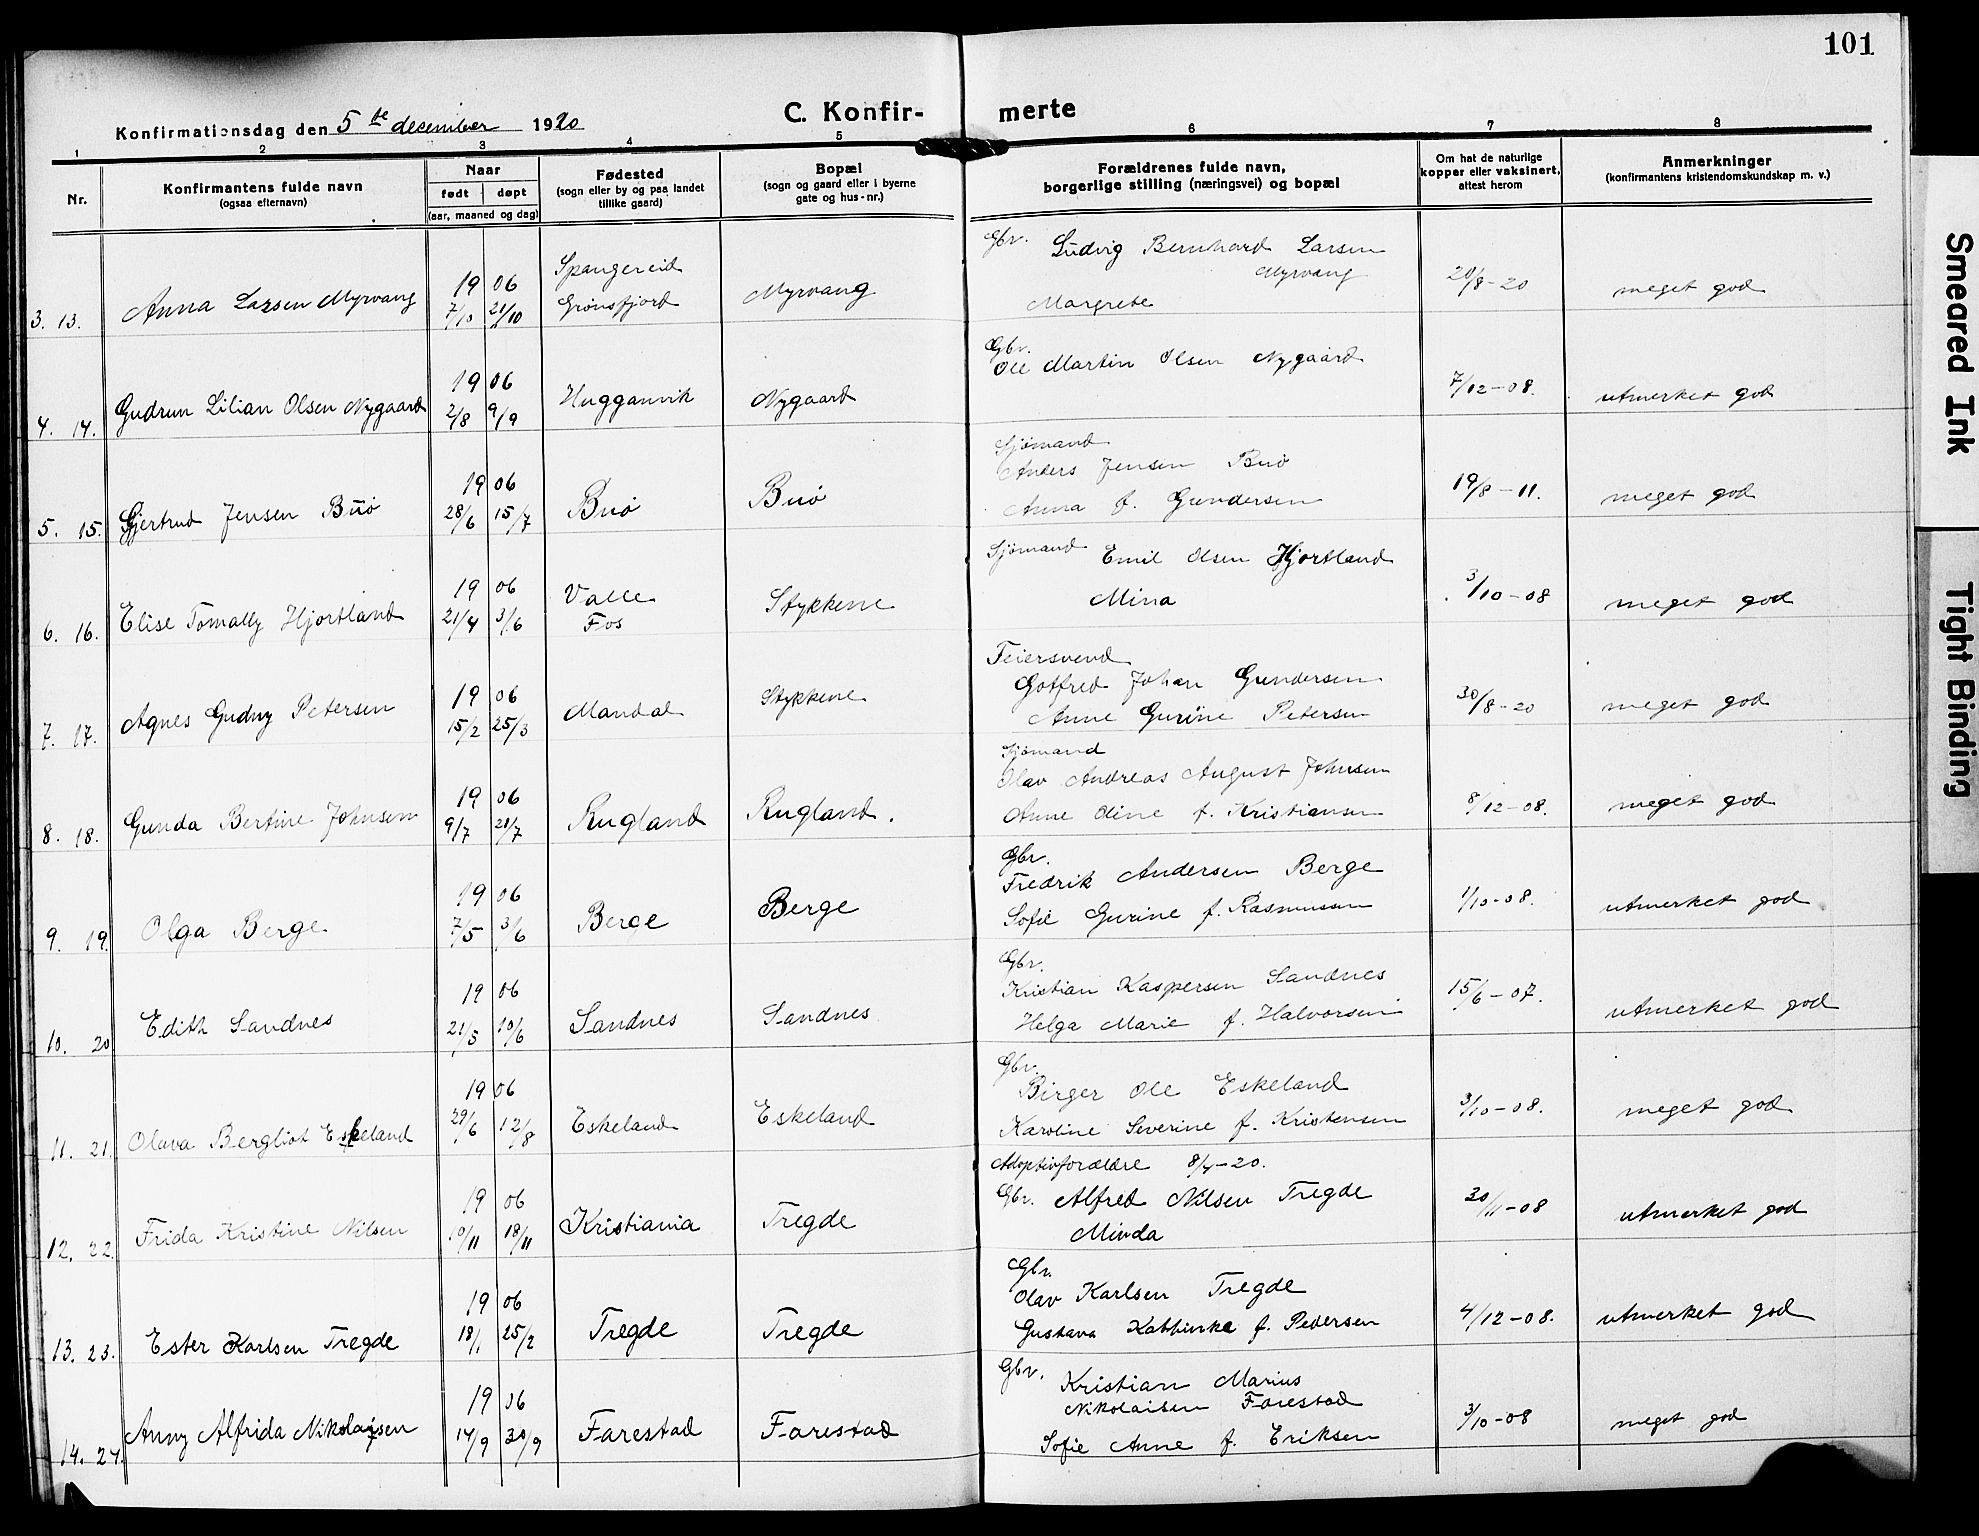 101
Konfirmationsdag den 5te december 1920
C. Konfirmerte
1 2 3 4 5 6 7 8
Nr.
Konfirmantens fulde navn
(ogsaa efternavn)
Naar
født døpt
(aar, maaned og dag)
Fødested
(sogn eller by og paa landet
tillike gaard)
Bopæl
(sogn og gaard eller i byerne
gate og hus-nr.)
Forældrenes fulde navn,
borgerlige stilling (næringsvei) og bopæl
Om hat de naturlige
kopper eller vaksinert,
attest herom
Anmerkninger
(konfirmantens kristendomskundskap m. v.)
3. 13. Anna Larsen Myrvang
19 06
7/10 21/10
Spangereid
Grønsfjord
Myrvang
Gbr. Ludvig Bernhard Larsen
Myrvang
Margrete
20/8-20
meget god
4. 14. Gudrun Lilian Olsen Nygaard
19 06
2/8 9/9
Hugganvik
Nygaard
Gbr.
Ole Martin Olsen Nygaard
7/12-08.
utmerket god
5. 15. Gjertrud Jensen Buø
19 06
28/6 15/7
Buø
Buø
Sjømand
Anders Jensen Buø
Anna f. Gundersen
19/8-11.
meget god
6. 16. Elise Tomally Hjortland
19 06
21/4 3/6
Valle
Fos
Stykkene
Sjømand Emil Olsen Hjortland
Mina
3/10-08
meget god
7. 17. Agnes Gudny Petersen
19 06
15/2 25/3
Mandal
Stykkene
Feiersvend
Gotfred Johan Gundersen
Anne Gurine Petersen
30/8-20
meget god
8. 18. Gunda Bertine Johnsen
19 06
9/7 21/7
Rugland
Rugland.
Sjømand
Olav Andreas August Johnsen
Anne Oline f. Kristiansen
8/12-08.
meget god
9. 19. Olga Berge
19 06
7/5 3/6
Berge
Berge
Gbr.
Fredrik Andersen Berge
Sofie Gurine f. Rasmussen
1/10-08.
utmerket god
10. 20 Edith Sandnes
19 06
21/5 10/6
Sandnes
Sandnes
Gbr.
Kristian Kaspersen Sandnes
Helga Marie f. Halvorsen
15/6-07.
utmerket god
11. 21. Olava Bergliot Eskeland
19 06
29/6 12/8
Eskeland
Eskeland
Gbr.
Birger Ole Eskeland
Karoline Severine f. Kristensen
3/10-08.
meget god
12. 22. Frida Kristine Nilsen
19 06
10/11 18/11
Kristiania
Tregde
Adoptivforældre 8/4-20.
Gbr. Alfred Nilsen Tregde
Minda
30/11-08
utmerket god
13. 23. Ester Karlsen Tregde
19 06
18/1 25/2
Tregde
Tregde
Gbr.
Olav Karlsen Tregde
Gustava Kathinka f. Pedersen
4/12-08.
utmerket god
14. 24. Anny Alfrida Nikolaisen
19 06
14/9 30/9
Farestad
Farestad
Gbr. Kristian Marius
Nikolaisen Farestad
Sofie Anne f. Eriksen
3/10-08
meget god
Smeared Ink
Tight Binding